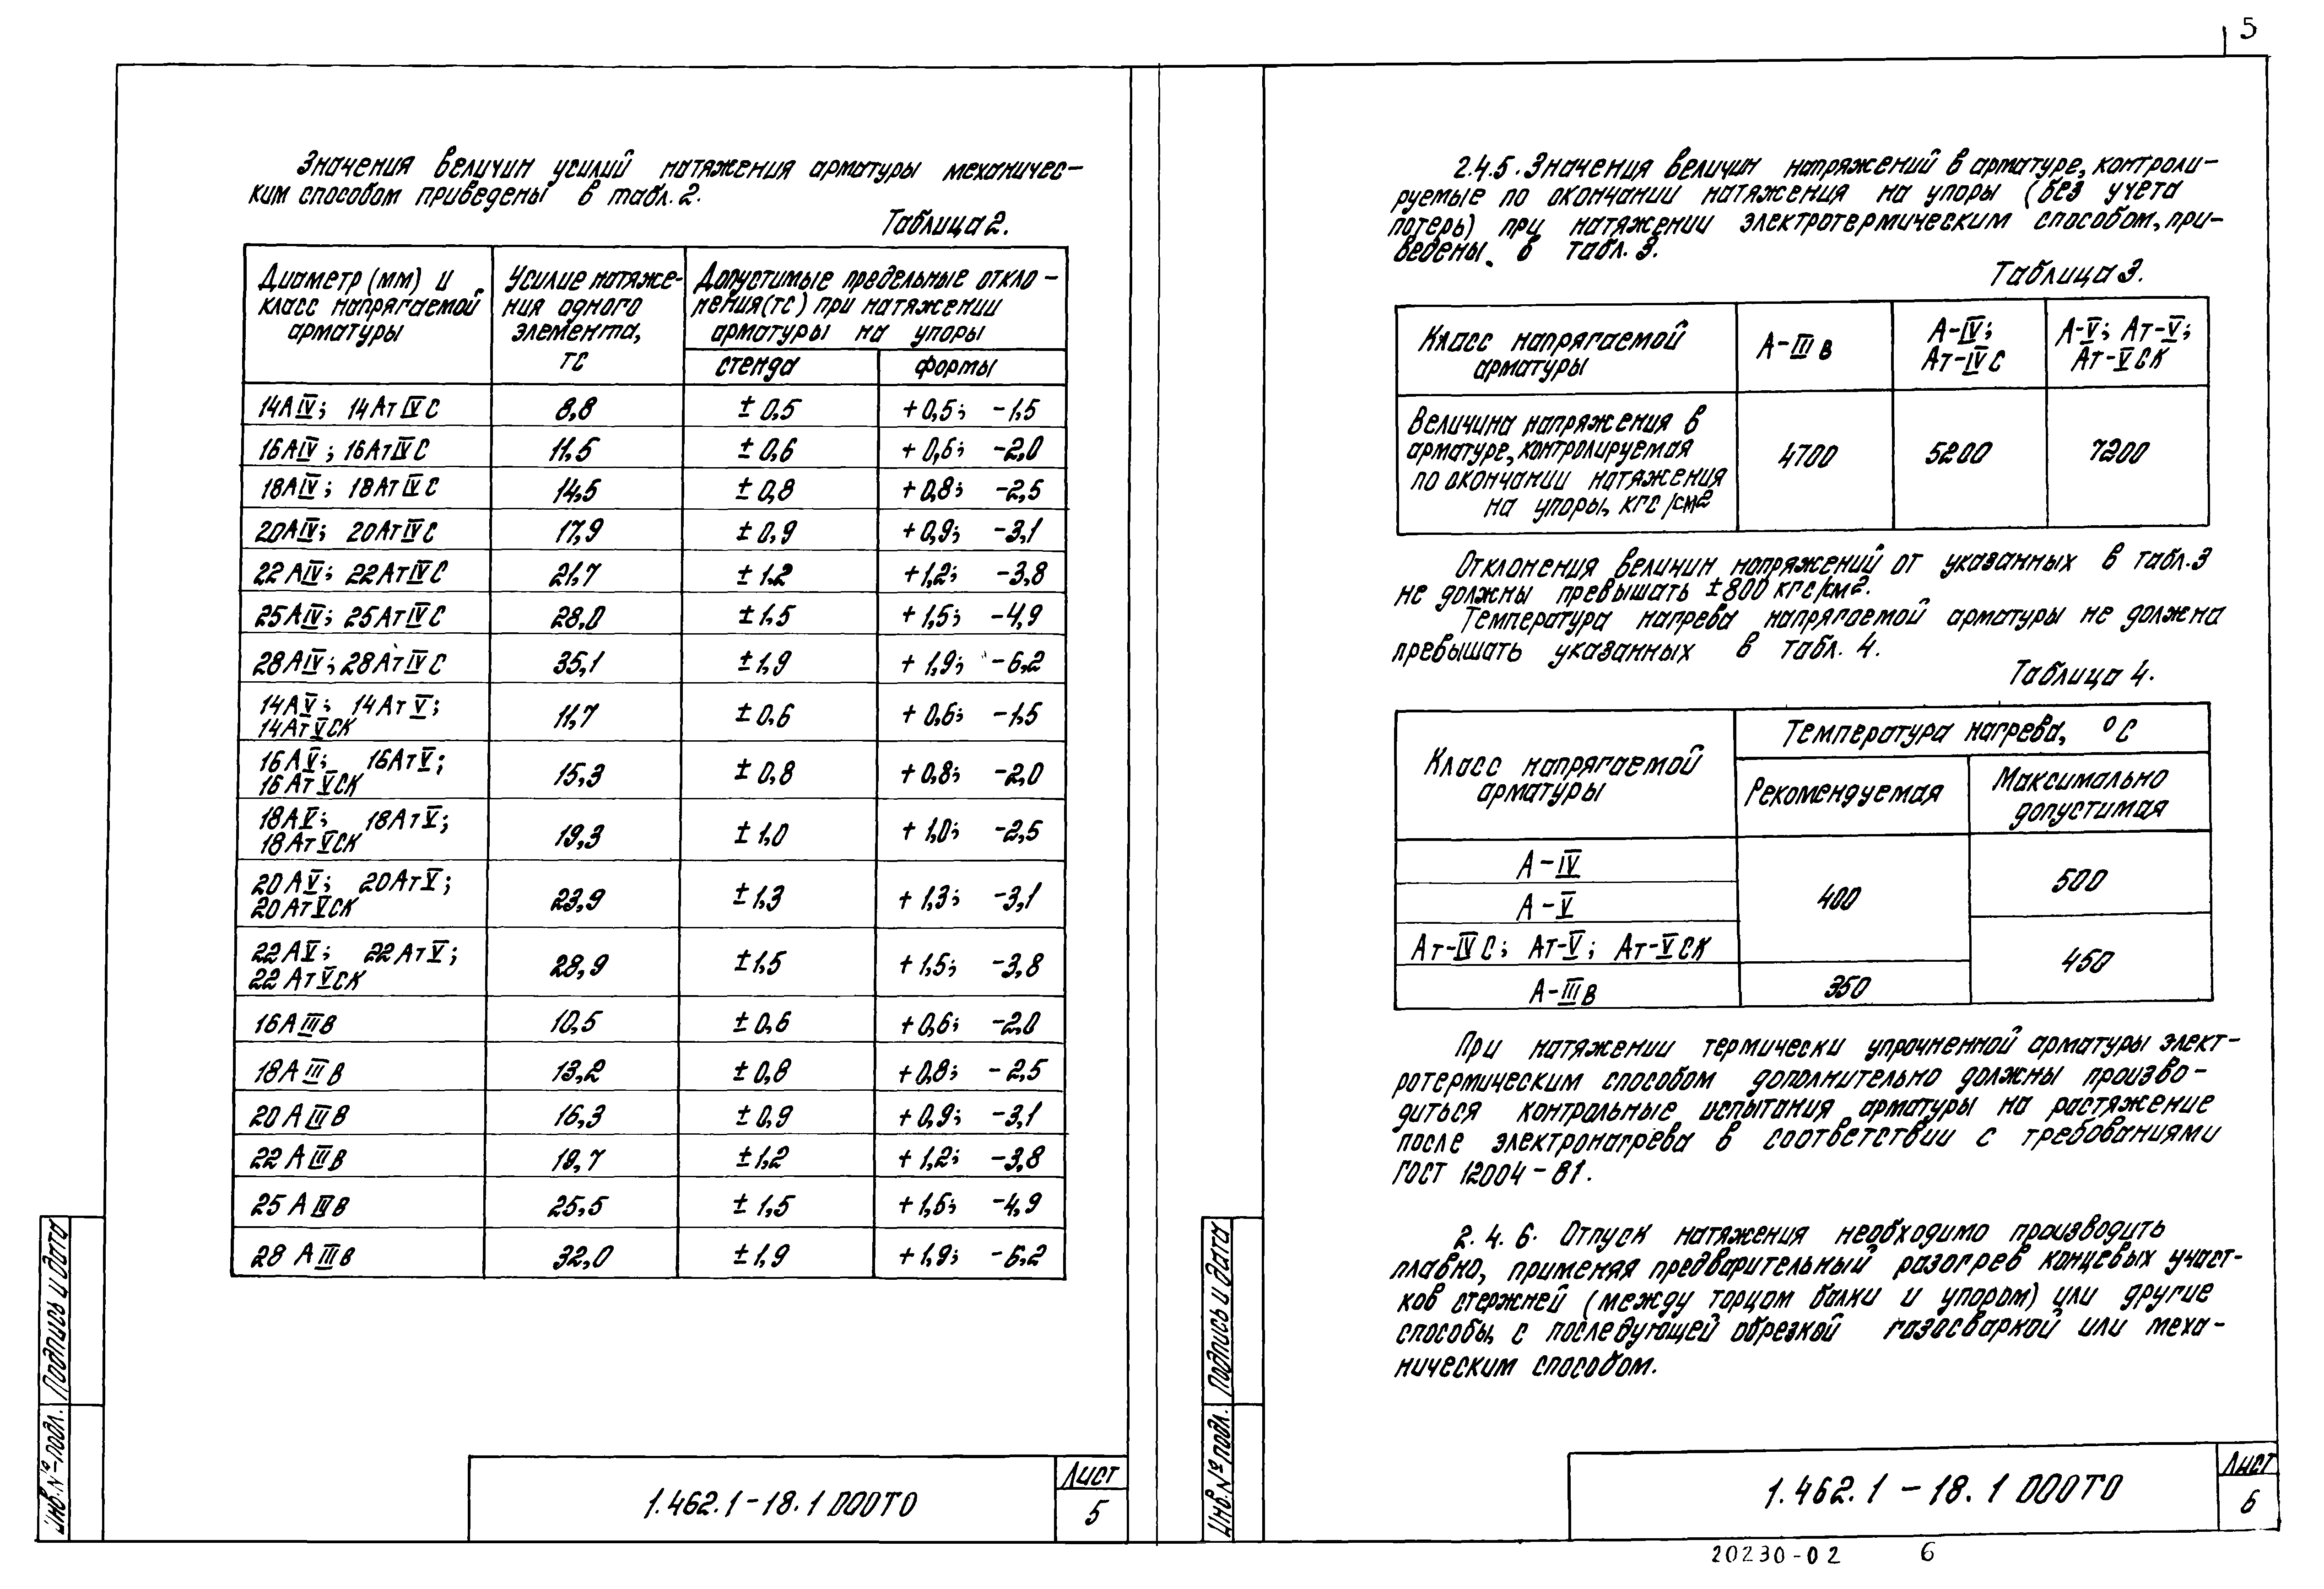 5
Значения величин усилий натяжения арматуры механичес-
ким способом приведены в табл. 2.
Таблица 2.
Диаметр (мм) и класс напрягаемой арматуры | Усилие натяже-ния одного элемента, тс | Допустимые предельные откло-нения (тс) при натяжении арматуры на упоры
стенда | формы
14АIV; 14АтIVС 8,8 ±0,5 +0,5; -1,5
16АIV; 16АтIVС 11,5 ±0,6 +0,6; -2,0
18АIV; 18АтIVС 14,5 ±0,8 +0,8; -2,5
20АIV; 20АтIVС 17,9 ±0,9 +0,9; -3,1
22АIV; 22АтIVС 21,7 ±1,2 +1,2; -3,8
25АIV; 25АтIVС 28,0 ±1,5 +1,5; -4,9
28АIV; 28АтIVС 35,1 ±1,9 +1,9; -6,2
14АV; 14АтV;
14АтVСК 11,7 ±0,6 +0,6; -1,5
16АV; 16АтV;
16АтVСК 15,3 ±0,8 +0,8; -2,0
18АV; 18АтV;
18АтVСК 19,3 ±1,0 +1,0; -2,5
20АV; 20АтV;
20АтVСК 23,9 ±1,3 +1,3; -3,1
22АV; 22АтV;
22АтVСК 28,9 ±1,5 +1,5; -3,8
16АIIIВ 10,5 ±0,6 +0,6; -2,0
18АIIIВ 13,2 ±0,8 +0,8; -2,5
20АIIIВ 16,3 ±0,9 +0,9; -3,1
22АIIIВ 19,7 ±1,2 +1,2; -3,8
25АIIIВ 25,5 ±1,5 +1,5; -4,9
28АIIIВ 32,0 ±1,9 +1,9; -6,2
Подпись и дата
Инв. № подл.
1.462.1-18.1 D00ТО
Лист
5
2.4.5. Значения величин напряжений в арматуре, контроли-
руемые по окончании натяжения на упоры (без учета
потерь) при натяжении электротермическим способом, при-
ведены в табл. 3.
Таблица 3.
Класс напрягаемой арматуры | А-IIIВ | А-IV; Ат-IVС | А-V; Ат-V; Ат-VСК
Величина напряжения в
арматуре, контролируемая
по окончании натяжения
на упоры, кгс/см2
4700 5200 7200
Отклонения величин напряжений от указанных в табл. 3
не должны превышать ±800 кгс/см2.
Температура нагрева напрягаемой арматуры не должна
превышать указанных в табл. 4.
Таблица 4.
Класс напрягаемой арматуры | Температура нагрева, °С
Рекомендуемая | Максимально допустимая
А-IV
А-V
400 500
Ат-IVС; Ат-V; Ат-VСК
450
А-IIIВ 350
При натяжении термически упрочненной арматуры элект-
ротермическим способом дополнительно должны произво-
диться контрольные испытания арматуры на растяжение
после электронагрева в соответствии с требованиями
ГОСТ 12004-81.
2.4.6. Отпуск натяжения необходимо производить
плавно, применяя предварительный разогрев концевых участ-
ков стержней (между торцом балки и упором) или другие
способы, с последующей обрезкой газосваркой или меха-
ническим способом.
Подпись и дата
Инв. № подл.
1.462.1-18.1 D00ТО
Лист
6
20230-02 6